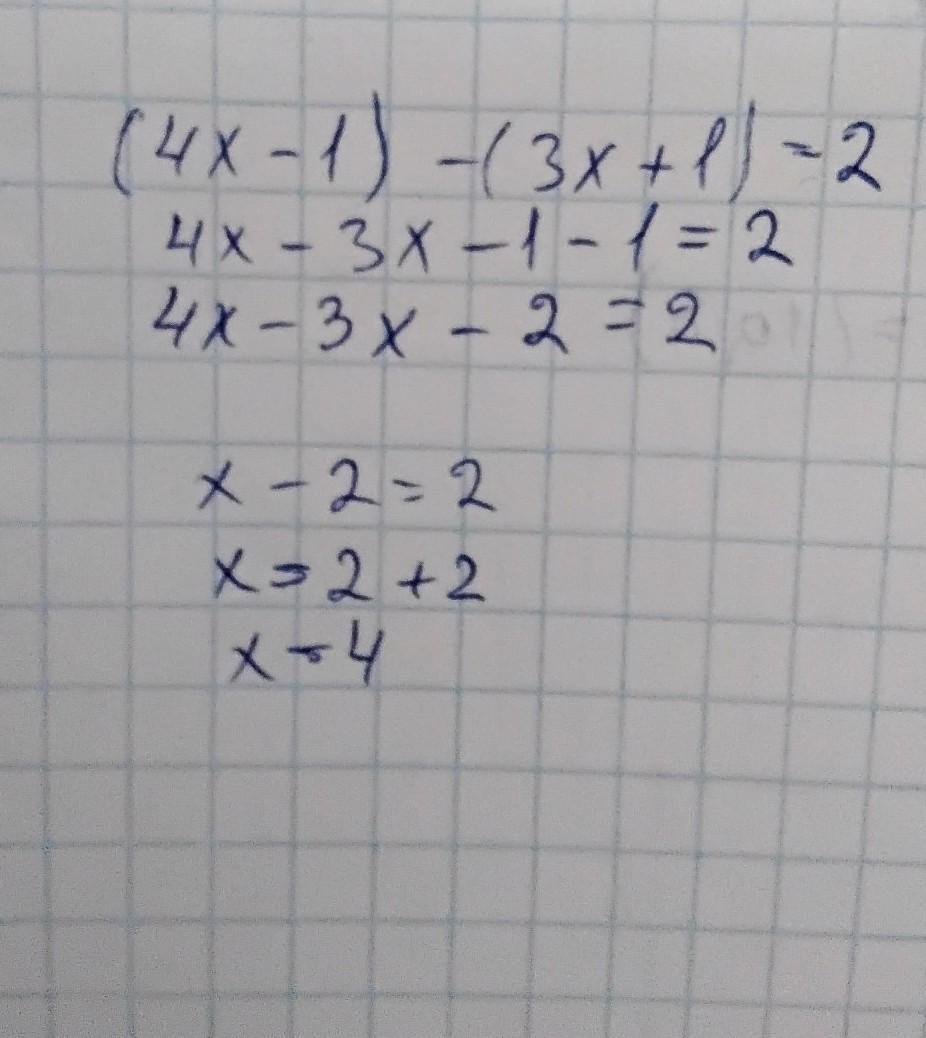 (4x - 1) - (3x + 1) = 2
4x - 3x - 1 - 1 = 2
4x - 3x - 2 = 2
x - 2 = 2
x = 2 + 2
x = 4